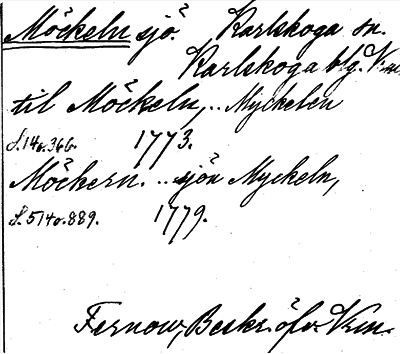 Möckeln sjö. Karlskoga sn.
Karlskoga blg. Vrml.
til Möckeln, .. Myckelen
S. 14 o. 366. 1773.
Möckern. .. sjön Myckeln,
S. 514 o. 889. 1779.
Fernow, Beskr. öfv. Vrm.